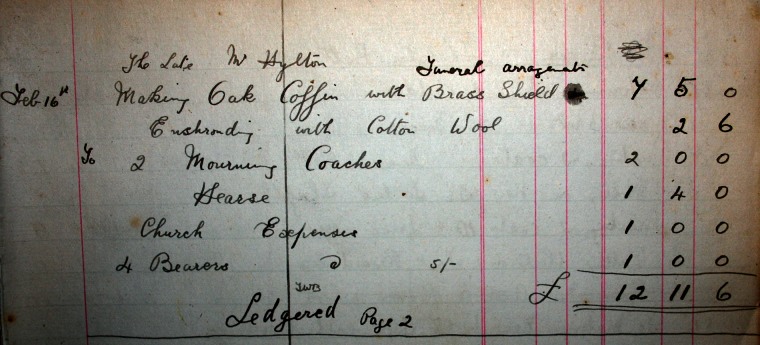 The Late Mr Hylton
Funeral
Feb 16th Making Oak Coffin with Brass Shield 7 5 0
Enshrouding with Cotton Wool 2 6
To 2 Mourning Coaches 2 0 0
Hearse 1 4 0
Church Expenses 1 0 0
4 Bearers @ 5/- 1 0 0
£ 12 11 6
JWB
Ledgered Page 2